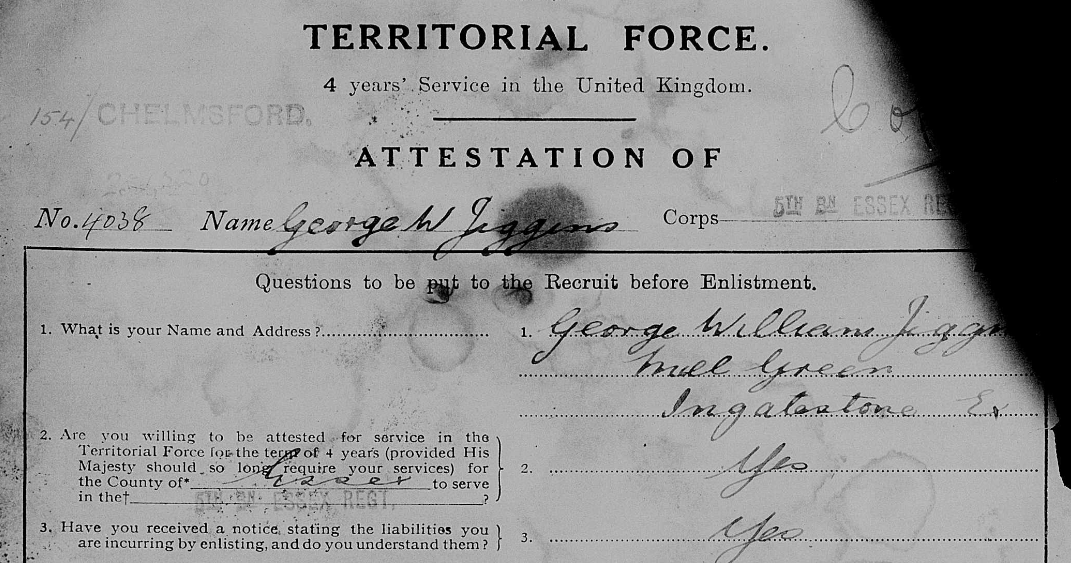 TERRITORIAL FORCE.
4 years' Service in the United Kingdom.
154/ CHELMSFORD.
ATTESTATION OF
No. 4038 Name George W Jiggins Corps 5TH BN ESSEX RE
Questions to be put to the Recruit before Enlistment.
1. What is your Name and Address? 1. George William Jiggin
Mill Green
Ingatestone Ex
2. Are you willing to be attested for service in the
Territorial Force for the term of 4 years (provided His
Majesty should so long require your services) for
the County of* Essex to serve
in the† 5TH BN. ESSEX REGT. ?
2. Yes
3. Have you received a notice, stating the liabilities you
are incurring by enlisting, and do you understand them?
3. Yes